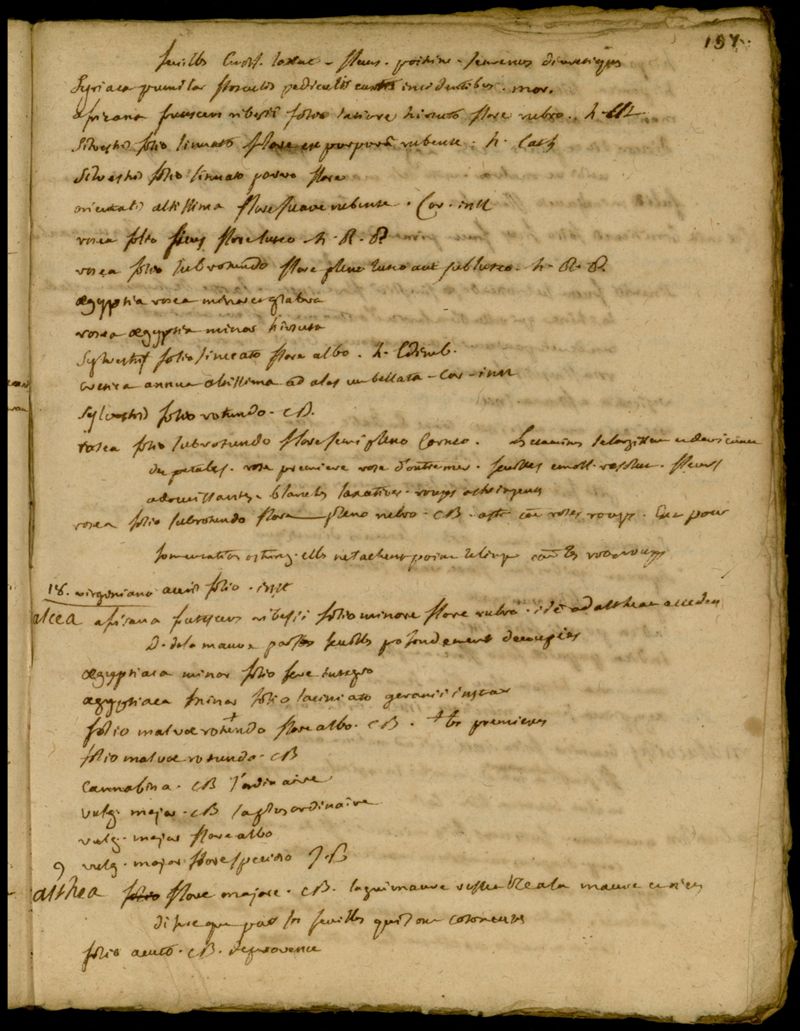 197.
feuilles emoll. laxat - fleurs . poitrine . semences diuretiques
Syriaca pumila flosculis pediculis insidentibus . mor.
africana frutescens folio latiore hirsuto flore rubro . h.
Silvestris folio sinuato flore ex purpura rubente . h. Cath
Silvestris folio sinuato parvo flore
orientalis altissima flore suave rubente . Cor . inst
rosea folio ficus flore luteo h. R. P.
rosea folio subrotundo flore pleno luteo aut subluteo . h. R. P.
ægyptia rosea minor glabra
rosea ægyptia minor hirsuta
Sylvestris folio sinuato flore albo . h. Edimb.
cretica annua altissima ad alas umbellata - Cor - inst
Sylvestris folio rotundo . CB.
rosea folio subrotundo flore semi pleno Carneo .
des petales . rose premiere rose d'outremer . feuilles emoll . resolu . fleurs
adoucissantes . blanches laxatives . rouges astringentes
rosea folio subrotundo flore pleno rubro . CB . rouges . pour
fomentation astring . elles ne tachent point le linge les roses rouges
18. virginiana aceris folio . inst
alcea africana frutescens folio minore flore rubro . ad althæam accedens
D. de la mauve par les feuilles profondement decoupées
ægyptiaca minor folio fere integro
ægyptiaca minor folio laciniato geranii instar
folio malvæ rotundo flore albo . CB . + premieres
folio malvæ rotundo . CB
Cannabina . CB l'ordinaire
vulg . major . CB la plus ordinaire
vulg . major flore albo
vulg . major flore specioso J. B
althea flore majore . CB . la guimauve ressemble a la mauve et n'en
difere que par les feuilles qui sont cotoneuses
folio acuto . CB . de provence